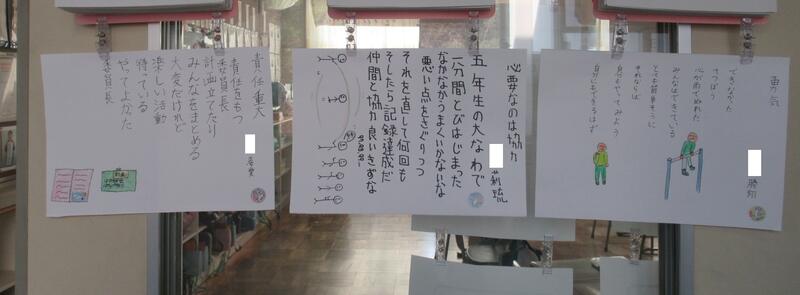 勇気
勝翔
できなかった
さかあがり
心が折れてめげた
みんなはできている
とても簡単そうに
それならば
自分もやってみよう
自分にもできるはず
必要なのは協力
莉琉
五年生の大なわで
一分間とびはじまった
なかなかうまくいかないな
悪い点をさぐりつつ
それを直して何回も
そしたら記録達成だ
仲間と協力良いきずな
責任重大
責任をもつ
委員長
計画立てたり
みんなをまとめる
大変だけれど
楽しい活動
待っている
やってよかった
委員長